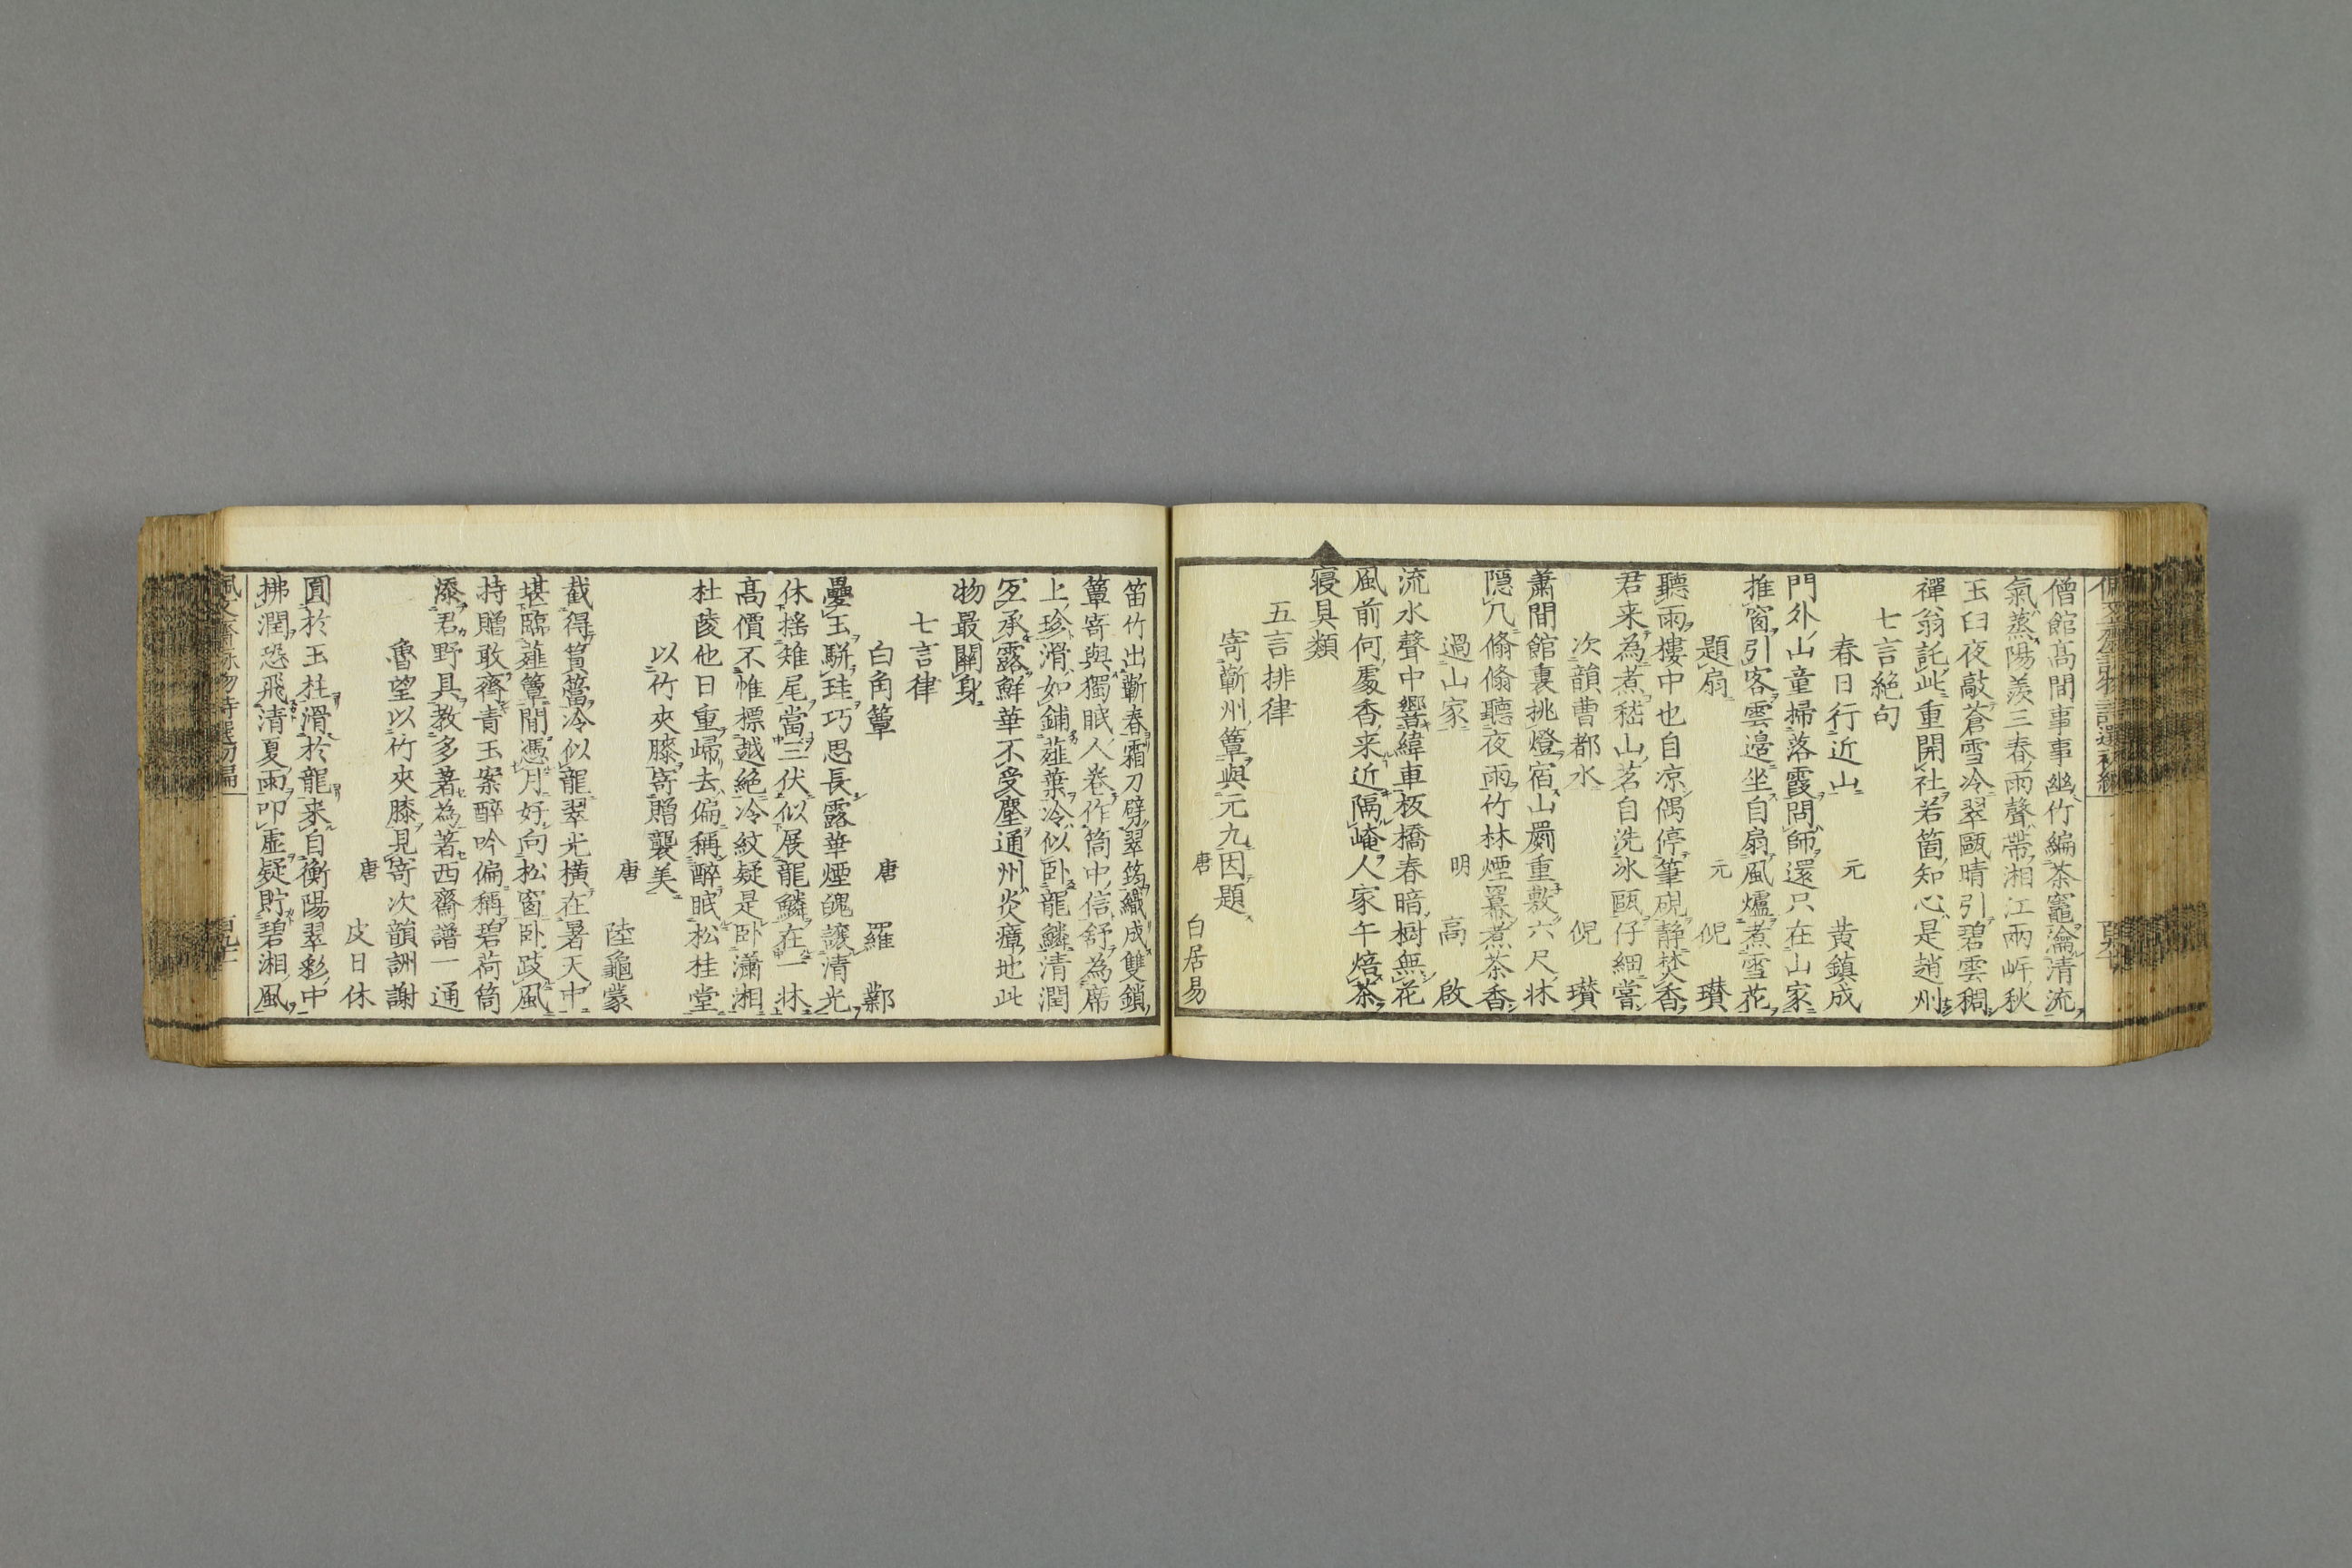 僧館高閒事事幽竹編茶竈瀹清流
氣蒸陽羨三春雨聲帶湘江兩岍秋
玉臼夜敲蒼雪冷翠甌晴引碧雲稠
禪翁託此重開社若箇知心是趙州
七言絕句
春日行近山 元 黄鎮成
門外山童掃落霞問師還只在山家
推窗引客雲邉坐自扇風爐煮雪花
題扇 元 倪 瓉
聽雨樓中也自凉偶停筆硯静焚香
君来為煮嵇山茗自洗冰甌仔細嘗
次韻曹都水 倪 瓉
蕭閒館裏挑燈宿山罽重敷六尺牀
隠几翛翛聽夜雨竹林煙羃煮茶香
過山家 明 高 啟
流水聲中響緯車板橋春暗樹無花
風前何處香来近隔崦人家午焙茶
寝具類
五言排律
寄蘄州簟與元九因題 唐 白居易
笛竹出蘄春霜刀劈翠筠織成雙鎖
簟寄與獨眠人卷作筒中信舒為席
上珍滑如鋪薤葉冷似卧龍鱗清潤
宜承露鮮華不受塵通州炎瘴地此
物最關身
七言律
白角簟 唐 羅 鄴
疊玉駢珪巧思長露華煙魄讓清光
休搖雉尾當三伏似展龍鱗在一牀
高價不惟標越絶冷紋疑是卧瀟湘
杜陵他日重歸去偏稱醉眠松桂堂
以竹夾膝寄贈襲美
唐 陸龜蒙
截得篔簹冷似龍翠光横在暑天中
堪臨薤簟閒憑月好向松窗卧跂風
持贈敢齊青玉案醉吟偏稱碧荷筒
添君野具教多著為著西齋譜一通
魯望以竹夾膝見寄次韻詶謝
唐 皮日休
圓於玉柱滑於龍来自衡陽翠彩中
拂潤恐飛清夏雨叩虚疑貯碧湘風